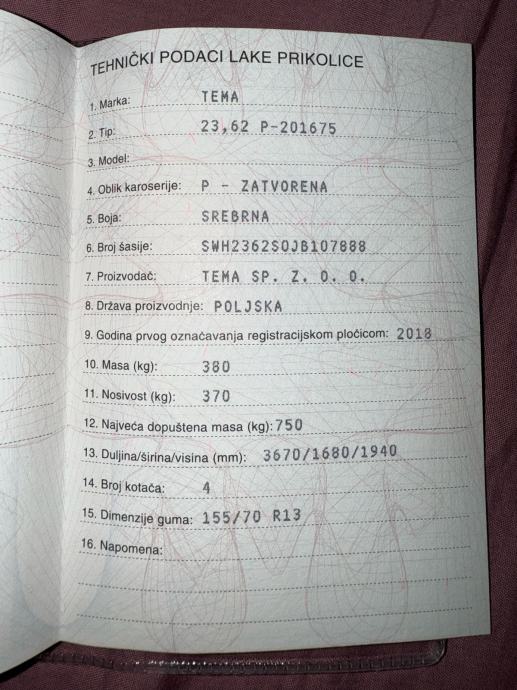 TEHNIČKI PODACI LAKE PRIKOLICE
1. Marka: TEMA
2. Tip: 23,62 P-201675
3. Model:
4. Oblik karoserije: P - ZATVORENA
5. Boja: SREBRNA
6. Broj šasije: SWH2362S0JB107888
7. Proizvođač: TEMA SP. Z. O. O.
8. Država proizvodnje: POLJSKA
9. Godina prvog označavanja registracijskom pločicom: 2018
10. Masa (kg): 380
11. Nosivost (kg): 370
12. Najveća dopuštena masa (kg): 750
13. Duljina/širina/visina (mm): 3670/1680/1940
14. Broj kotača: 4
15. Dimenzije guma: 155/70 R13
16. Napomena: